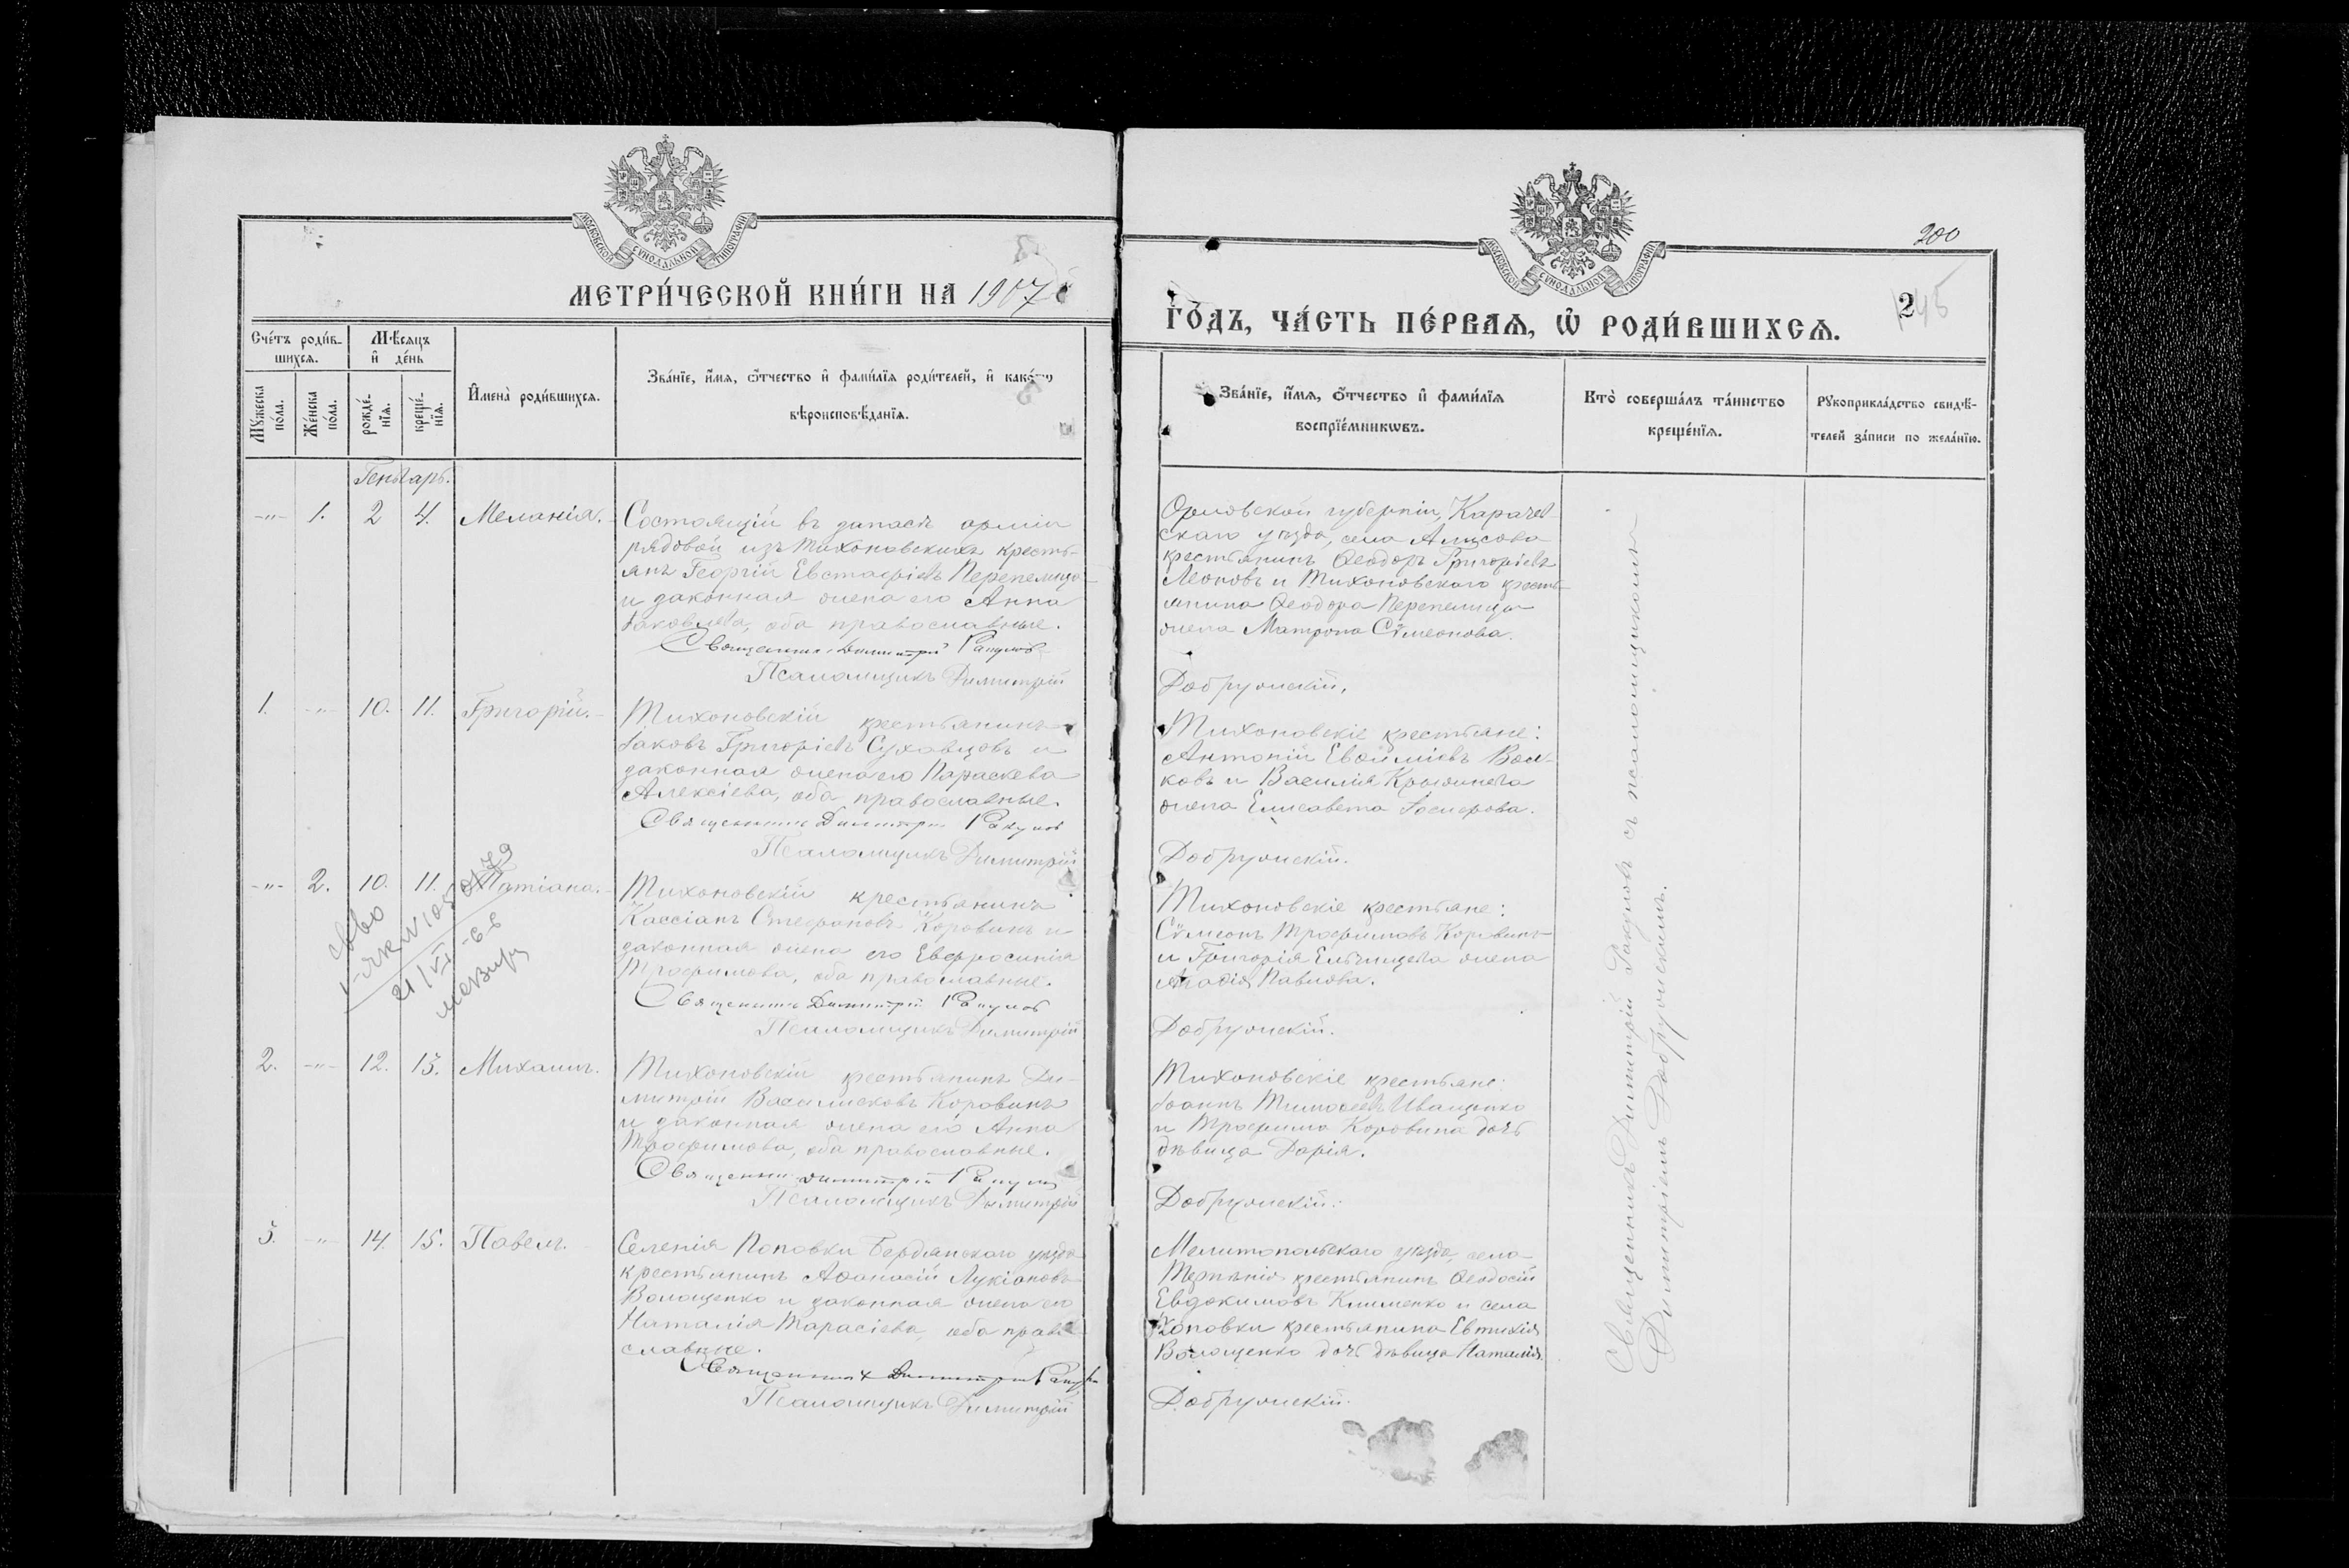 МОСКОВСКОЙ СѴНОДАЛЬНОЙ ТИПОГРАФІИ
МЕТРИ́ЧЕСКОЙ КНИ́ГИ НА 1907
Сче́тъ роди́в-
шихсѧ.
Мѣ́сѧцъ
и҆ де́нь
Мꙋ́жеска
по́ла.
Же́нска
по́ла.
рожде́-
нїѧ.
креще́-
нїѧ.
И҆мена̀ роди́вшихсѧ.
Зва́нїе, и҆́мѧ, ѻ҆́тчество и҆ фами́лїѧ роди́телей, и҆ како́гѡ
вѣроисповѣ́данїѧ.
Генварь.
-"- 1. 2 4. Меланія.
Состоящій въ запасѣ арміи
рядовой изъ Тихоновскихъ кресть-
янъ Георгій Евстафіевъ Перепелица
и законная жена его Анна
Іаковлева, оба православные.
Священникъ Димитрій Ракулов
Псаломщикъ Димитрій
1. -"- 10. 11. Григорій.
Тихоновскій крестьянинъ
Іаковъ Григоріевъ Суховцовъ и
законная жена его Параскева
Алексіева, оба православные.
Священникъ Димитрій Ракулов
Псаломщикъ Димитрій
-"- 2. 10. 11. Татіана.
Тихоновскій крестьянинъ
Кассіанъ Стефановъ Коровинъ и
законная жена его Евфросинія
Трофимова, оба православные.
Священникъ Димитрій Ракулов
Псаломщикъ Димитрій
21/VI-66
2. -"- 12. 13. Михаилъ.
Тихоновскій крестьянинъ Ди-
митрій Василисковъ Коровинъ
и законная жена его Анна
Трофимова, оба православные.
Священникъ Димитрій Ракулов
Псаломщикъ Димитрій
3. -"- 14. 15. Павелъ.
Селенія Поповки Бердянскаго уѣзда
крестьянинъ Аѳанасій Лукіановъ
Волощенко и законная жена его
Наталія Тарасіева, оба право
славные.
Священникъ Димитрій Ракулов
Псаломщикъ Димитрій
МОСКОВСКОЙ СѴНОДАЛЬНОЙ ТИПОГРАФІИ
200
2
145
ГО́ДЪ, ЧА́СТЬ ПЕ́РВАѦ, Ѽ РОДИ́ВШИХСѦ.
Зва́нїе, и҆́мѧ, ѻ҆́тчество и҆ фами́лїѧ
воспрїе́мникѡвъ.
Кто̀ соверша́лъ та́инство
креще́нїѧ.
Рꙋкоприкла́дство свидѣ́-
телей за́писи по жела́нїю.
Орловской губерніи, Карачев-
скаго уѣзда, села Алисова
крестьянинъ Ѳеодоръ Григоріевъ
Леоновъ и Тихоновскаго кресть-
янина Ѳеодора Перепелицы
жена Матрона Сѵмеонова.
Добружскій.
Тихоновскіе крестьяне:
Антоній Евѳиміевъ Вол-
ковъ и Василія
жена Елисавета Іосифова.
Добружскій.
Тихоновскіе крестьяне:
Сѵмеонъ Трофимовъ Коровинъ
и Григорія жена
Агаѳія Павлова.
Добружскій.
Тихоновскіе крестьяне:
Іоаннъ Тимоѳеевъ Иващенко
и Трофима Коровина дочь
дѣвица Дарія.
Добружскій.
Мелитопольскаго уѣзда, села
Терпѣнія крестьянинъ Ѳеодосій
Евдокимовъ Клименко и села
Поповки крестьянина Евтихія
Волощенко дочь дѣвица Наталія.
Добружскій.
Священникъ Димитрій Ракуловъ съ псаломщикомъ
Димитріемъ Добружскимъ.